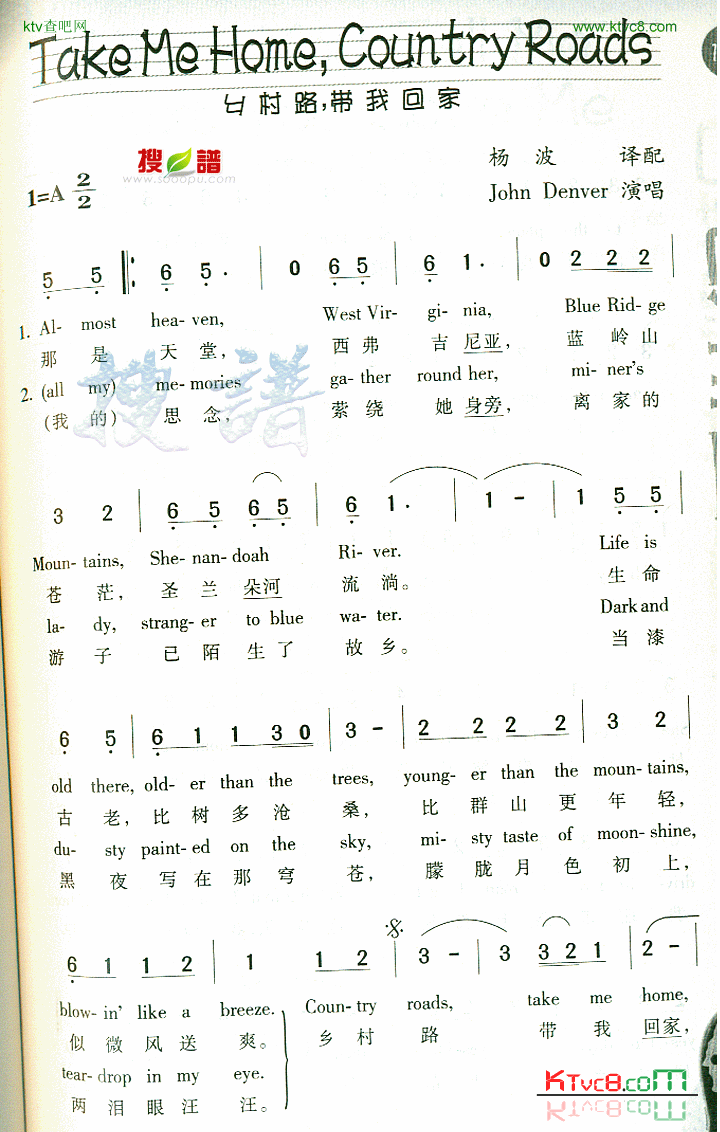 ktv查吧网
www.ktvc8.com
Take Me Home, Country Roads
乡村路,带我回家
搜谱
www.sooopu.com
杨波 译配
1=A 2/2
John Denver 演唱
5 5 ‖: 6 5· | 0 6 5 | 6 1· | 0 2 2 2 |
1. Al- most heaven, West Vir- gi- nia, Blue Rid- ge
那是天堂, 西弗吉尼亚, 蓝岭山
2. (all my) me- mories ga- ther round her, mi- ner's
(我的) 思念, 萦绕她身旁, 离家的
搜谱
3 2 | 6 5 6 5 | 6 1· | 1 - | 1 5 5 |
Moun- tains, She- nan- doah Ri- ver. Life is
苍茫, 圣兰朵河流淌。 生命
la- dy, strang- er to blue wa- ter. Dark and
游子已陌生了故乡。 当漆
6 5 | 6 1 1 3 0 | 3 - | 2 2 2 2 | 3 2 |
old there, old- er than the trees, young- er than the moun- tains,
古老, 比树多沧桑, 比群山更年轻,
du- sty paint- ed on the sky, mi- sty taste of moon- shine,
黑夜写在那穹苍, 朦胧月色初上,
6 1 1 2 | 1 1 2 | 3 - | 3 3 2 1 | 2 - |
blow- in' like a breeze. Coun- try roads, take me home,
似微风送爽。 乡村路带我回家,
tear- drop in my eye.
两泪眼汪汪。
KTvc8.com